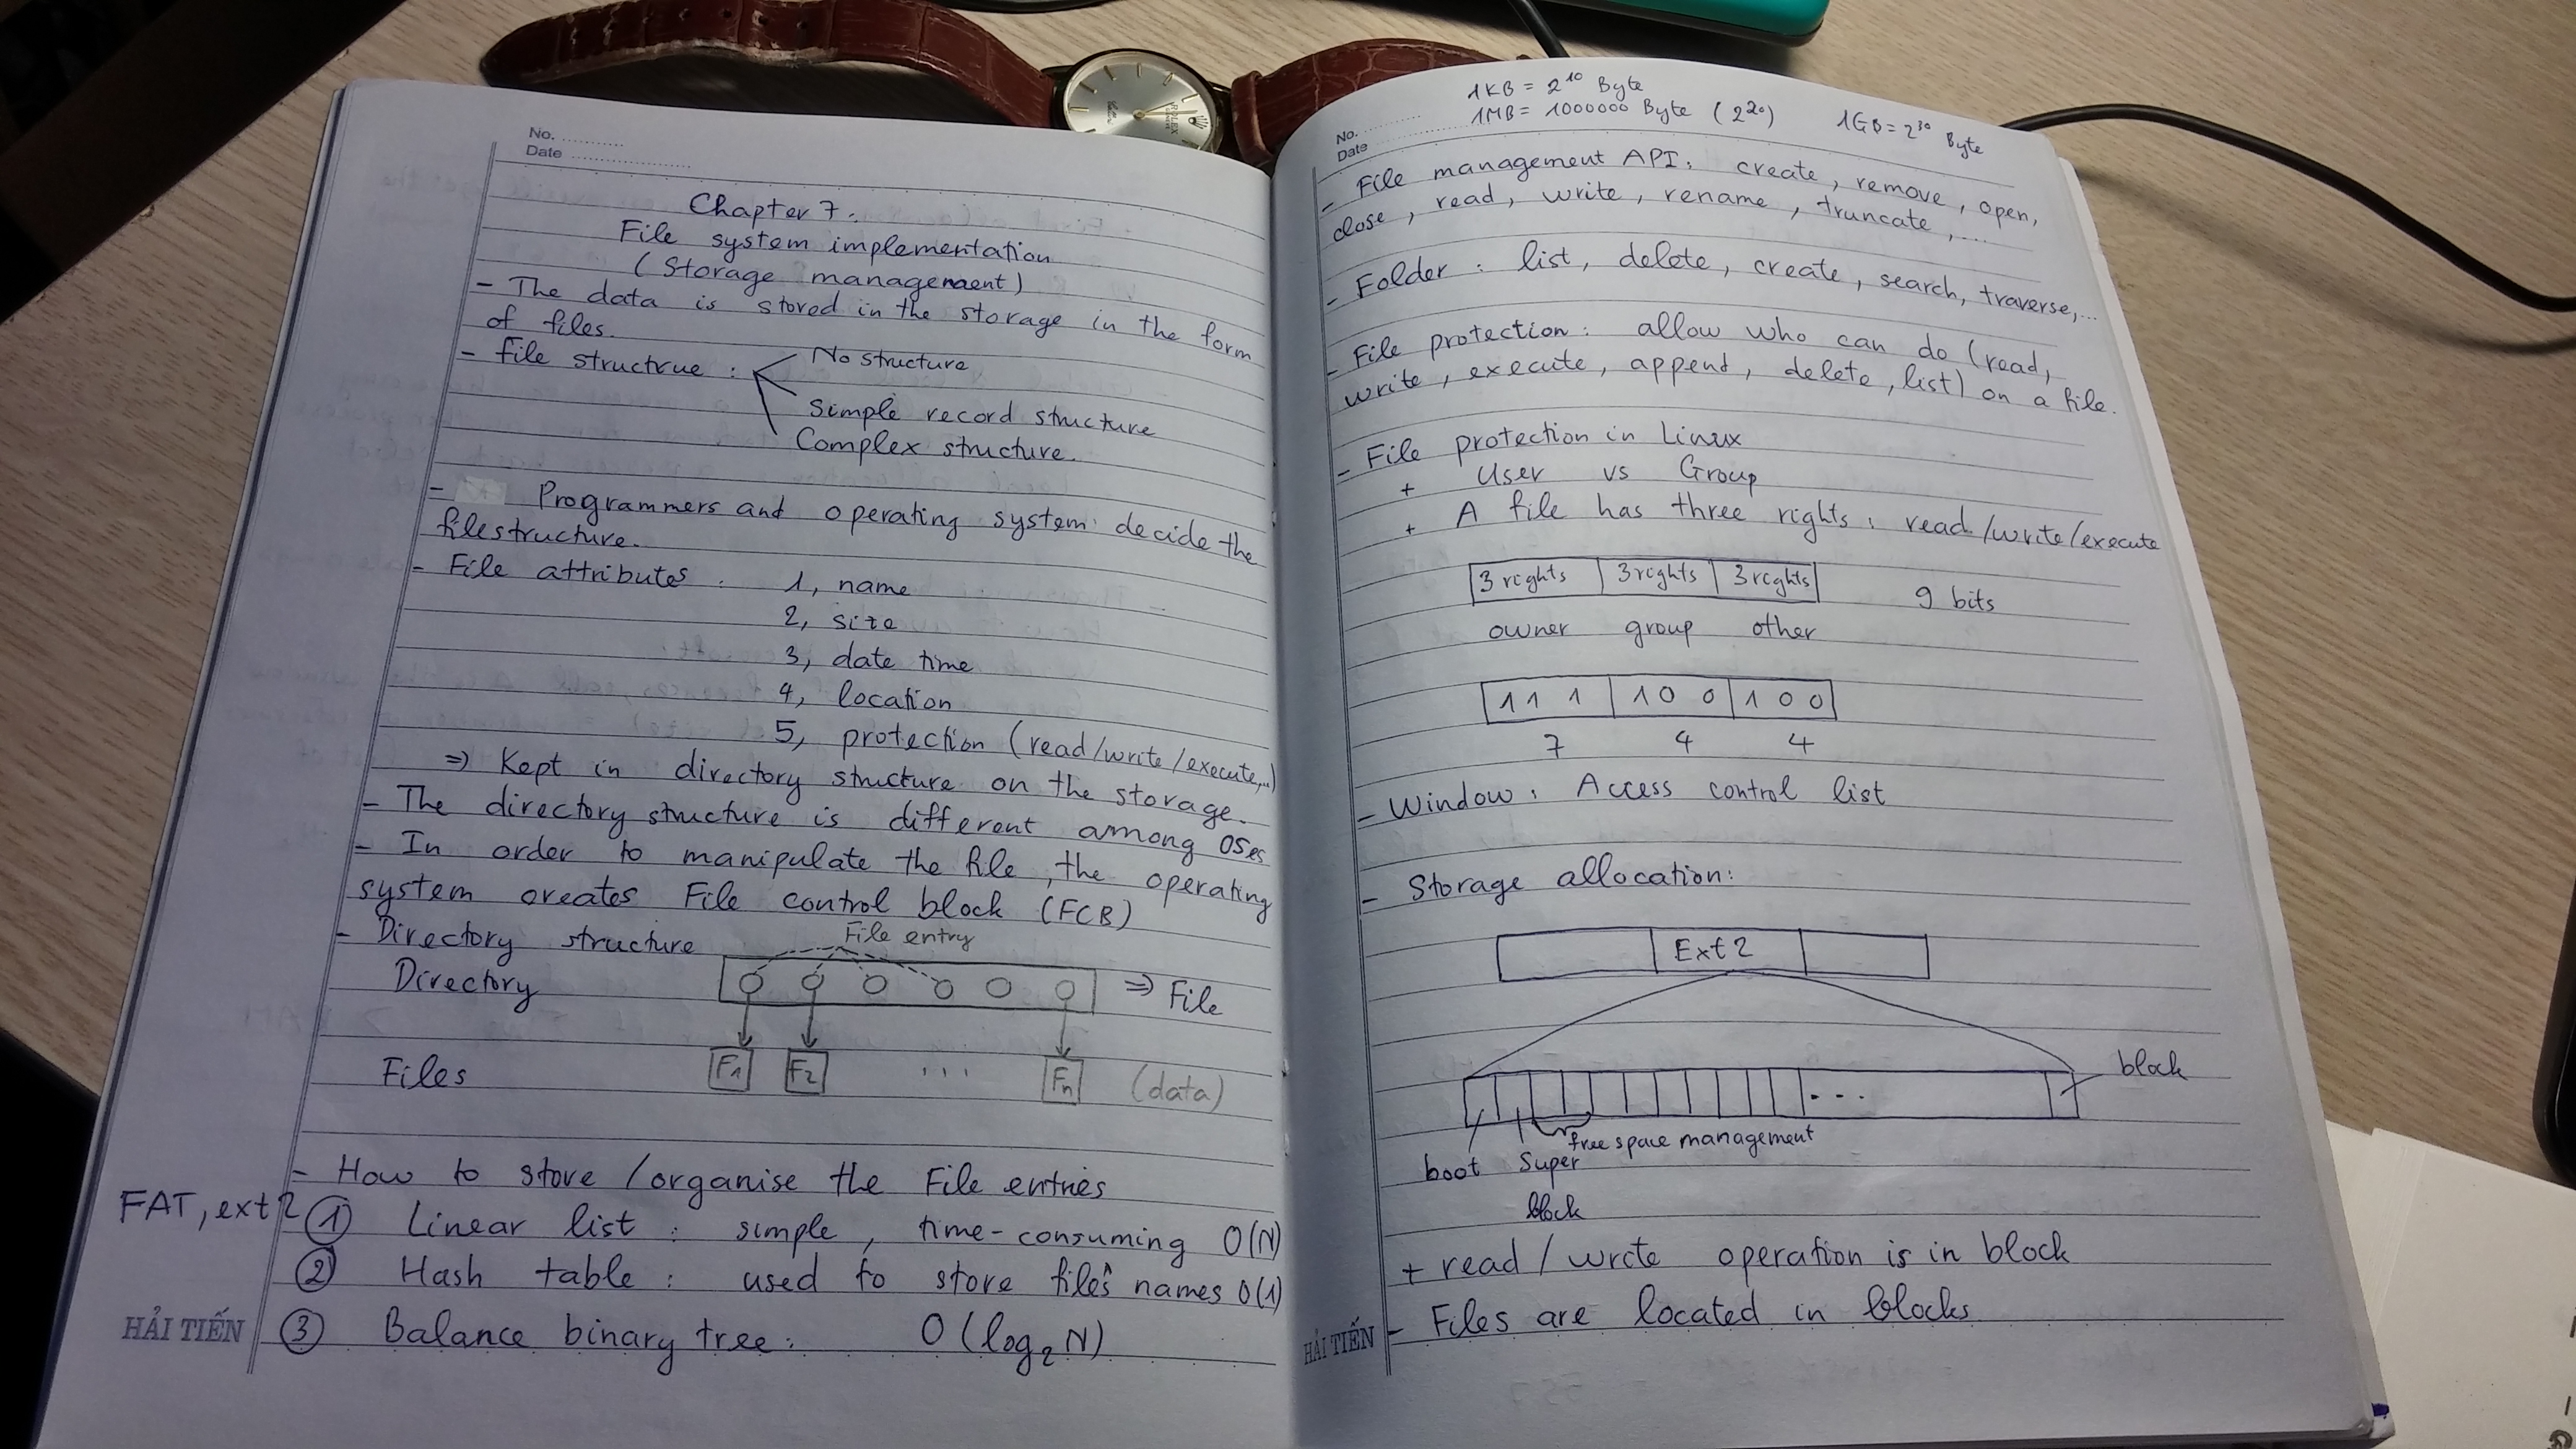 No. ............
Date ......................
Chapter 7.
File system implementation
(Storage management)
- The data is stored in the storage in the form
of files.
- File structrue : No structure
Simple record structure
Complex structure.
- Programmers and operating system decide the
filestructure.
- File attributes : 1, name
2, size
3, date time
4, location
5, protection (read/write/execute,..)
=> Kept in directory structure on the storage.
- The directory structure is different among OSes
- In order to manipulate the file, the operating
system creates File control block (FCB)
- Directory structure File entry
Directory => File
Files F1 F2 ... Fn (data)
- How to store /organise the File entries
FAT, ext2 ① Linear list : simple, time-consuming O(N)
② Hash table : used to store file's names O(1)
HẢI TIẾN ③ Balance binary tree : O(log₂N)
1KB = 2¹⁰ Byte
1MB = 1000000 Byte (2²⁰) 1GB = 2³⁰ Byte
No. ............
Date ............
- File management API : create, remove, open,
close, read, write, rename, truncate, ...
- Folder : list, delete, create, search, traverse,...
- File protection : allow who can do (read,
write, execute, append, delete, list) on a file.
- File protection in Linux
+ User vs Group
+ A file has three rights : read/write/execute
3 rights 3 rights 3 rights 9 bits
owner group other
1 1 1 1 0 0 1 0 0
7 4 4
- Window : Access control list
- Storage allocation:
Ext2
... block
free space management
boot Super
block
+ read / write operation is in block
- Files are located in blocks
HẢI TIẾN
ROLEX